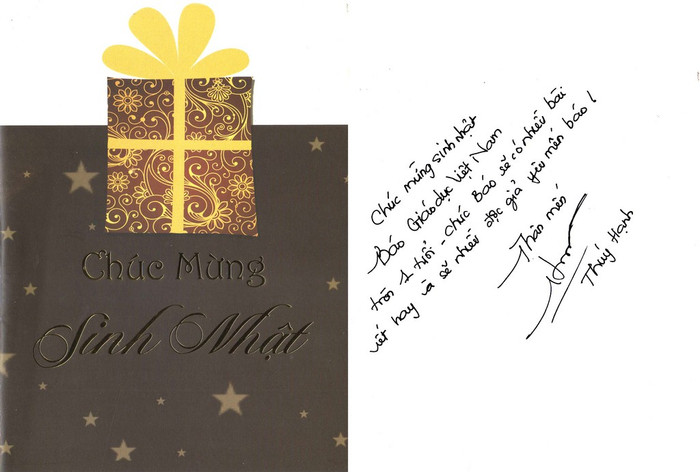 Chúc Mừng
Sinh Nhật
Chúc mừng sinh nhật
Báo Giáo dục Việt Nam
tròn 1 tuổi - chúc Báo sẽ có nhiều bài
viết hay và sẽ nhiều độc giả yêu mến báo!
Thân mến
Thúy Hạnh